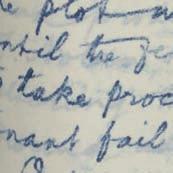 plot
until the
take proc
nant fail